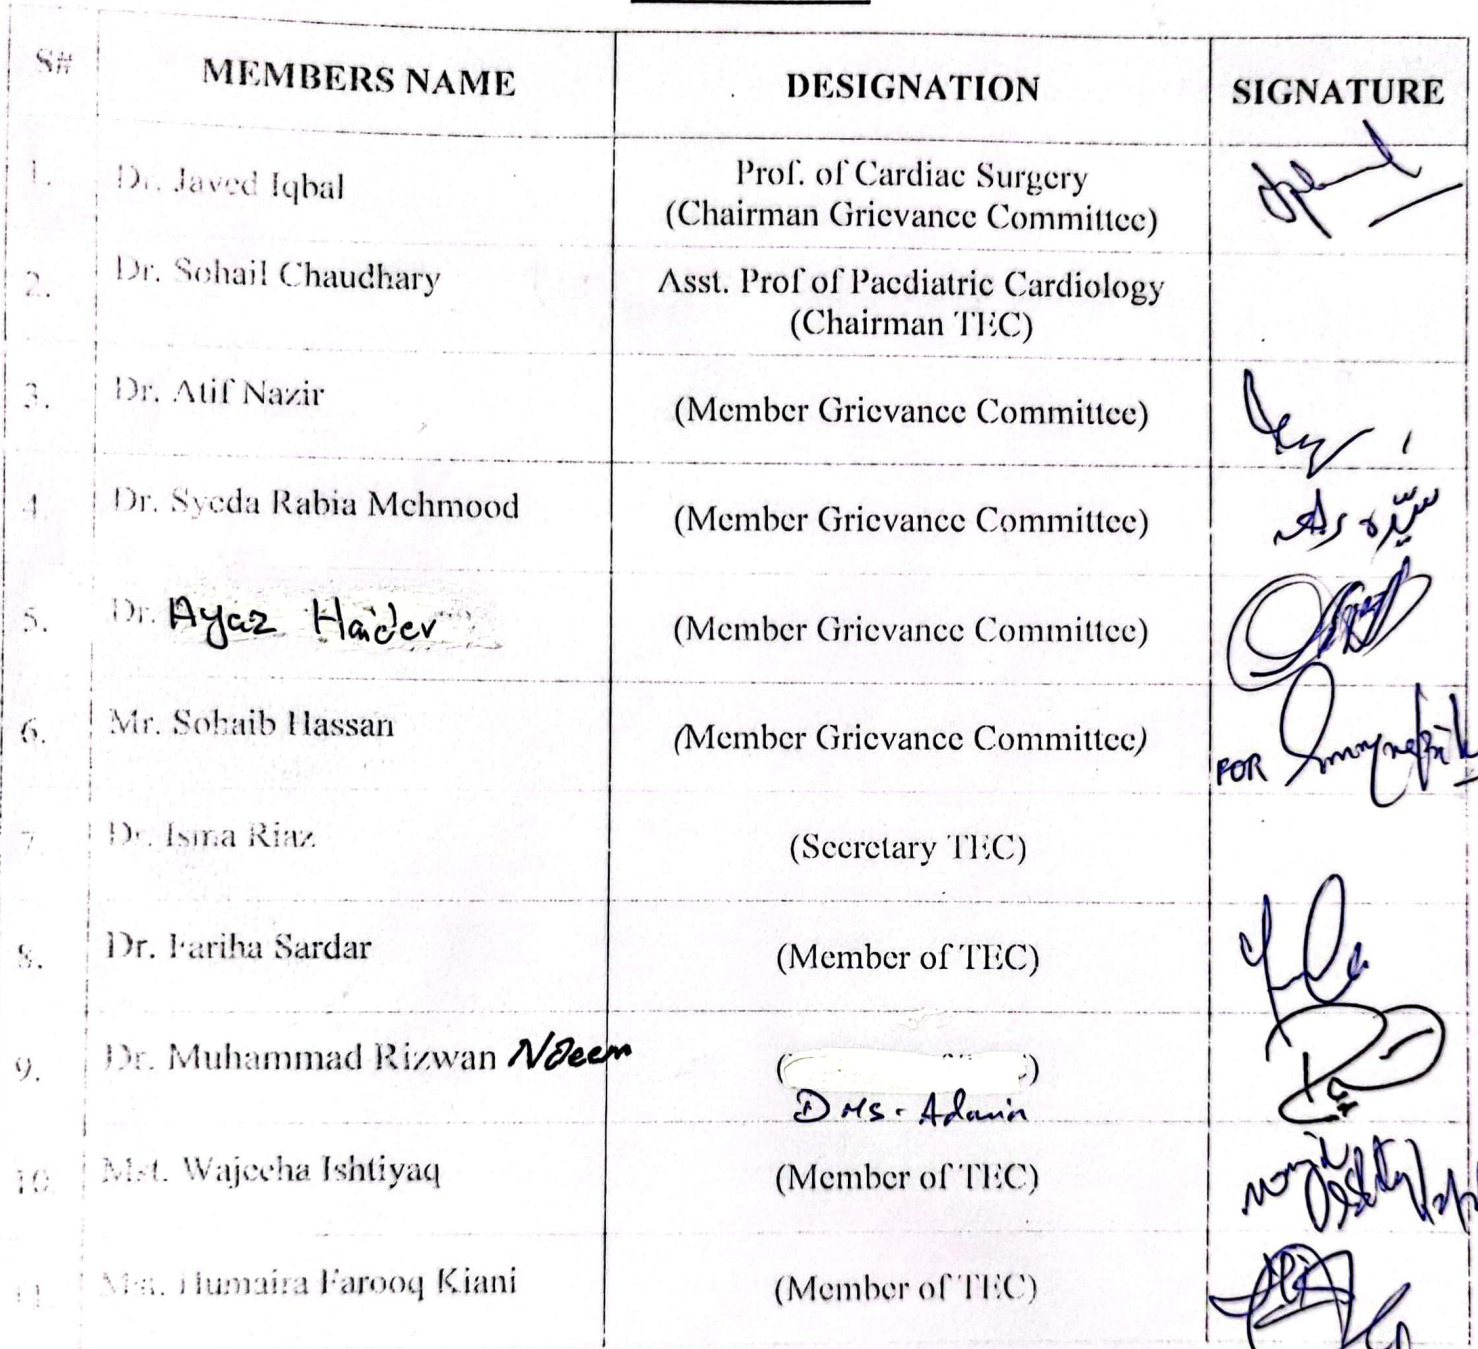 S# MEMBERS NAME DESIGNATION SIGNATURE
1. Dr. Javed Iqbal Prof. of Cardiac Surgery
(Chairman Grievance Committee)
2. Dr. Sohail Chaudhary Asst. Prof of Paediatric Cardiology
(Chairman TEC)
3. Dr. Atif Nazir (Member Grievance Committee)
4. Dr. Syeda Rabia Mehmood (Member Grievance Committee) سیّدہ
5. Dr. Ayaz Haider (Member Grievance Committee)
6. Mr. Sohaib Hassan (Member Grievance Committee) FOR
7. Dr. Isma Riaz (Secretary TEC)
8. Dr. Fariha Sardar (Member of TEC)
9. Dr. Muhammad Rizwan Naeem ( )
DMS. Admin
10. Mst. Wajeeha Ishtiyaq (Member of TEC)
11. Humaira Farooq Kiani (Member of TEC)